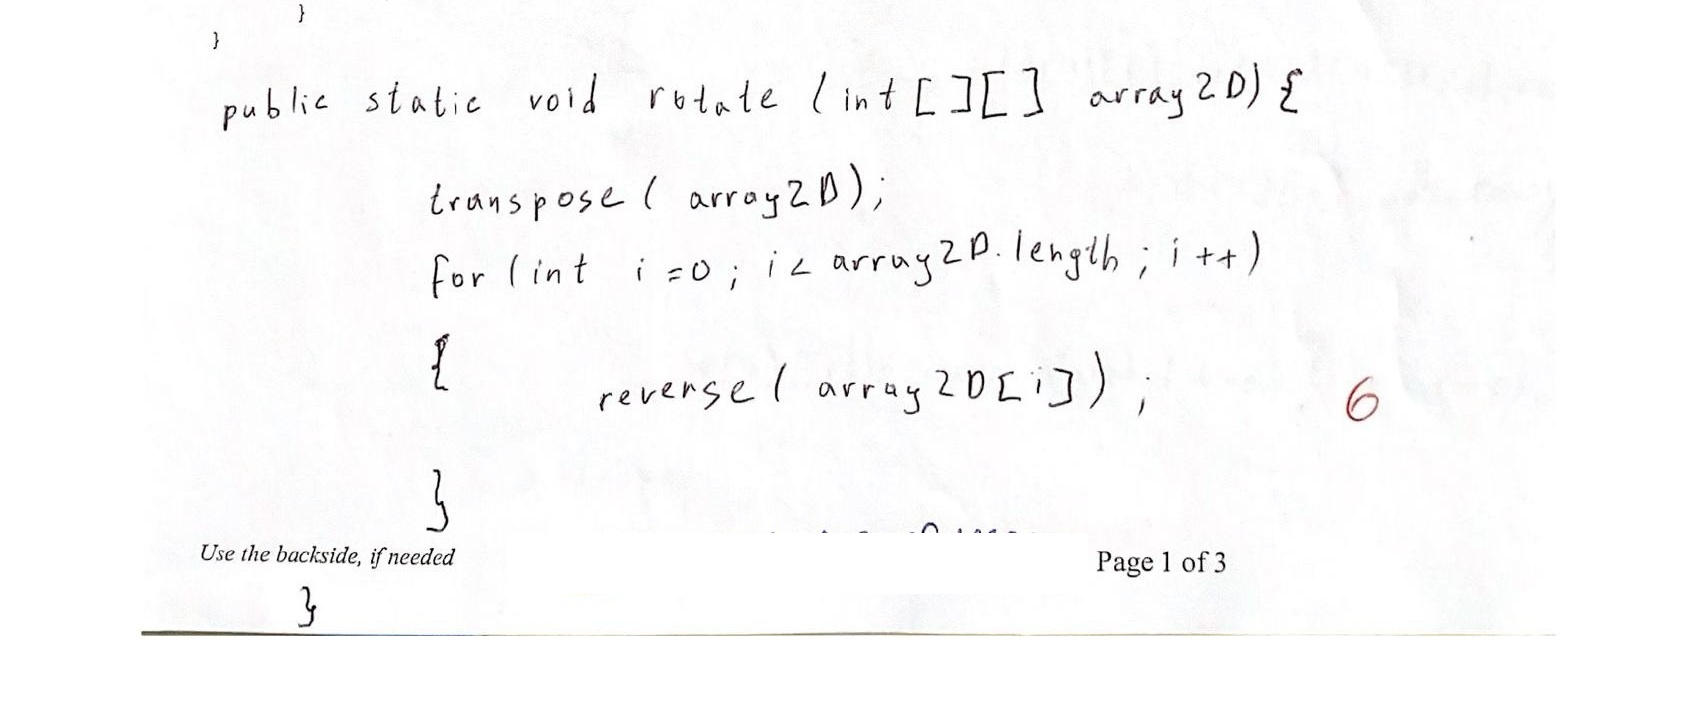 }
}
public static void rotate (int[][] array2D) {
transpose( array2D);
for (int i=0; i< array2D.length; i++)
{
reverse( array2D[i]);
6
}
Use the backside, if needed
Page 1 of 3
}